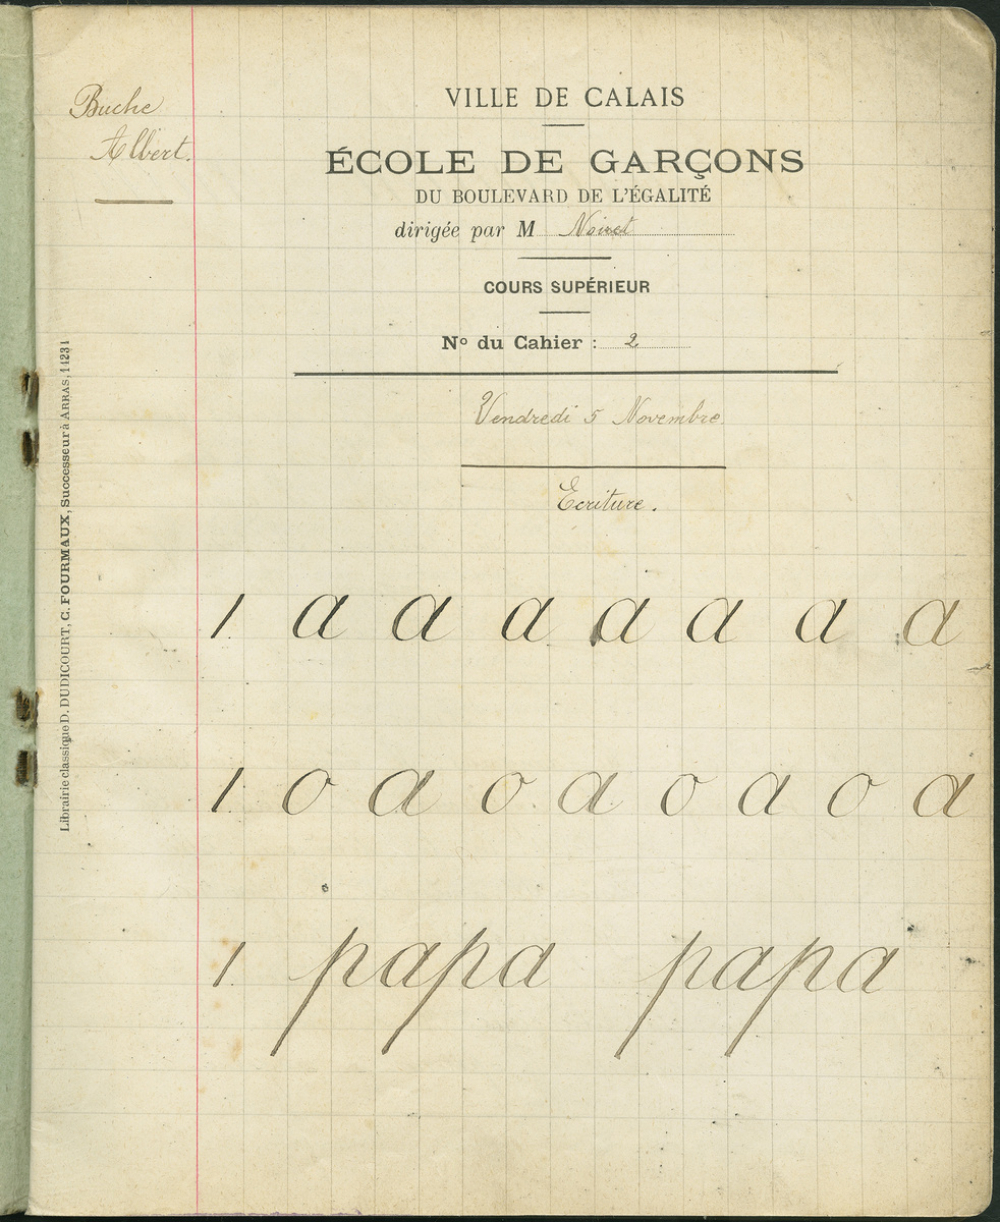 Buche
Albert.
VILLE DE CALAIS
ÉCOLE DE GARÇONS
DU BOULEVARD DE L'ÉGALITÉ
dirigée par M Noiret
COURS SUPÉRIEUR
Nº du Cahier : 2
Vendredi 5 Novembre
Ecriture.
1. a a a a a a a
1. o a o a o a o a
1. papa papa
Librairie classique D. DUDICOURT, C. FOURMAUX, Successeur à ARRAS, 14231